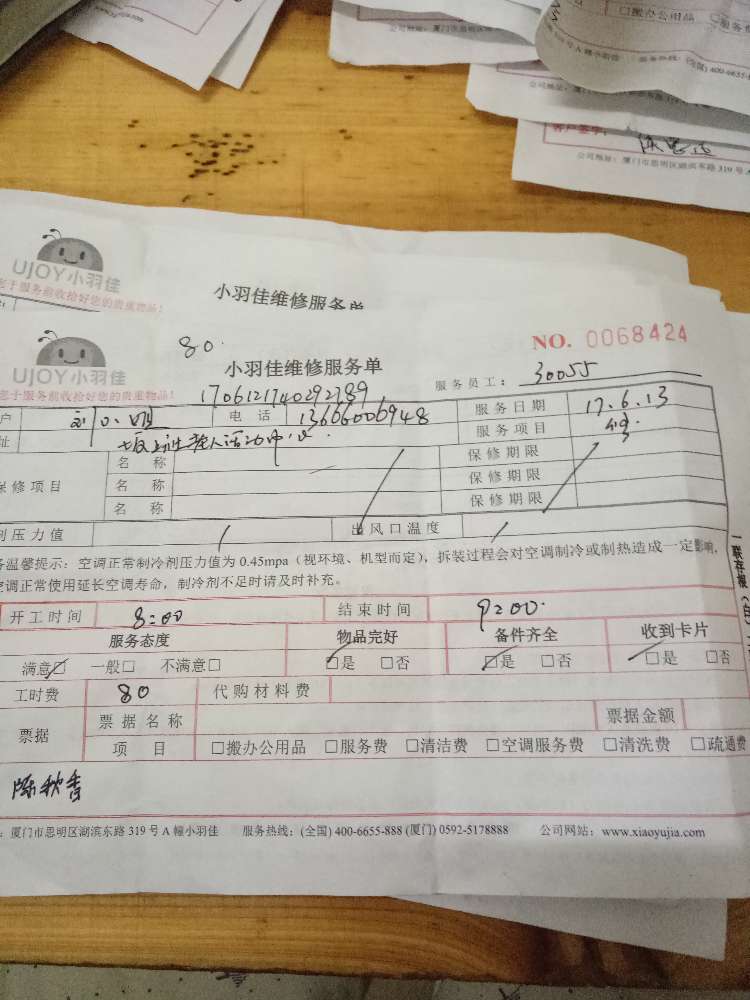 搬办公用品
服务
厦门市思明区
服务热线：(全国) 400-6655-8
公司地址：厦门市
客户签字：
公司地址：厦门市思明区湖滨东路 319 号 A
UJOY小羽佳
于服务前收拾好您的贵重物品！
小羽佳维修服务单
80.
NO. 0068424
UJOY小羽佳
小羽佳维修服务单
服务员工： 30055
您于服务前收拾好您的贵重物品！
1706121740292789
户 电 话 13666006948 服务日期 17.6.13
址 老人活动中心 服务项目
保修项目 名 称 保修期限
名 称 保修期限
名 称 保修期限
剂压力值 出风口温度
温馨提示：空调正常制冷剂压力值为 0.45mpa（视环境、机型而定），拆装过程会对空调制冷或制热造成一定影响，
空调正常使用延长空调寿命，制冷剂不足时请及时补充。
一联存根（白
开工时间 8:00 结束时间 9:00.
服务态度 物品完好 备件齐全 收到卡片
满意☑ 一般□ 不满意□ ☑是 □否 ☑是 □否 ☑是 □否
工时费 80 代购材料费
票据 票据名称 票据金额
项 目 □搬办公用品 □服务费 □清洁费 □空调服务费 □清洗费 □疏通费
陈秋香
：厦门市思明区湖滨东路 319 号 A 幢小羽佳 服务热线：(全国) 400-6655-888 (厦门) 0592-5178888 公司网站：www.xiaoyujia.com